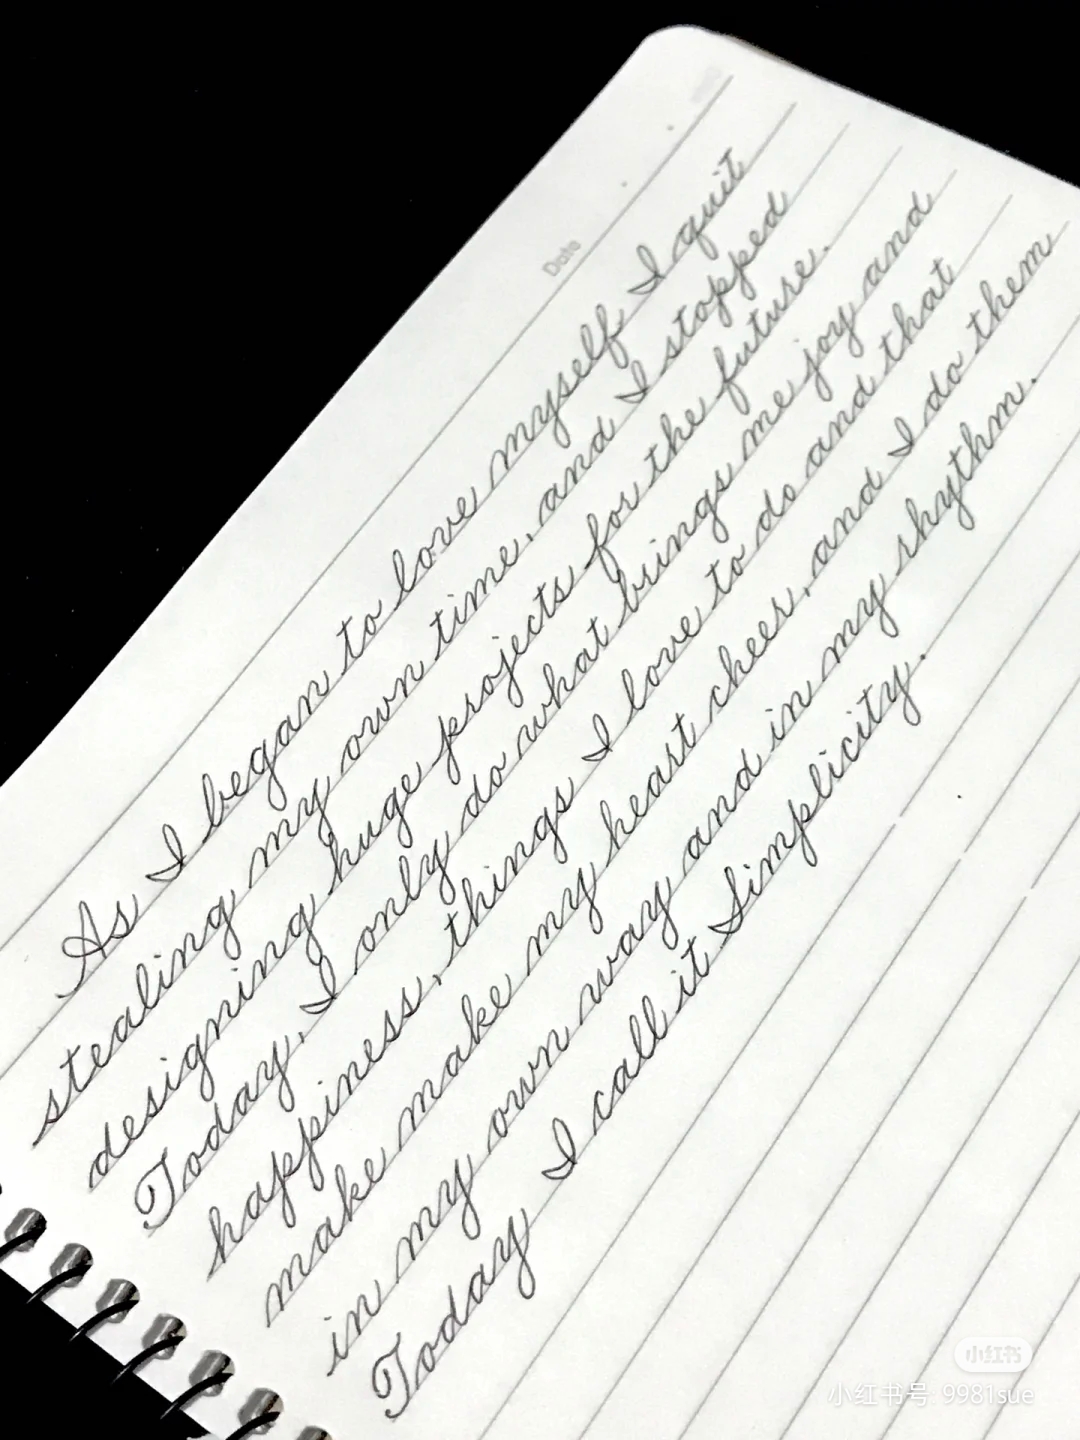 Date
As I began to love myself I quit
stealing my own time, and I stopped
designing huge projects for the future.
Today, I only do what brings me joy and
happiness, things I love to do and that
make make my heart cheer, and I do them
in my own way and in my rhythm.
Today I call it Simplicity.
小红书
小红书号: 9981sue